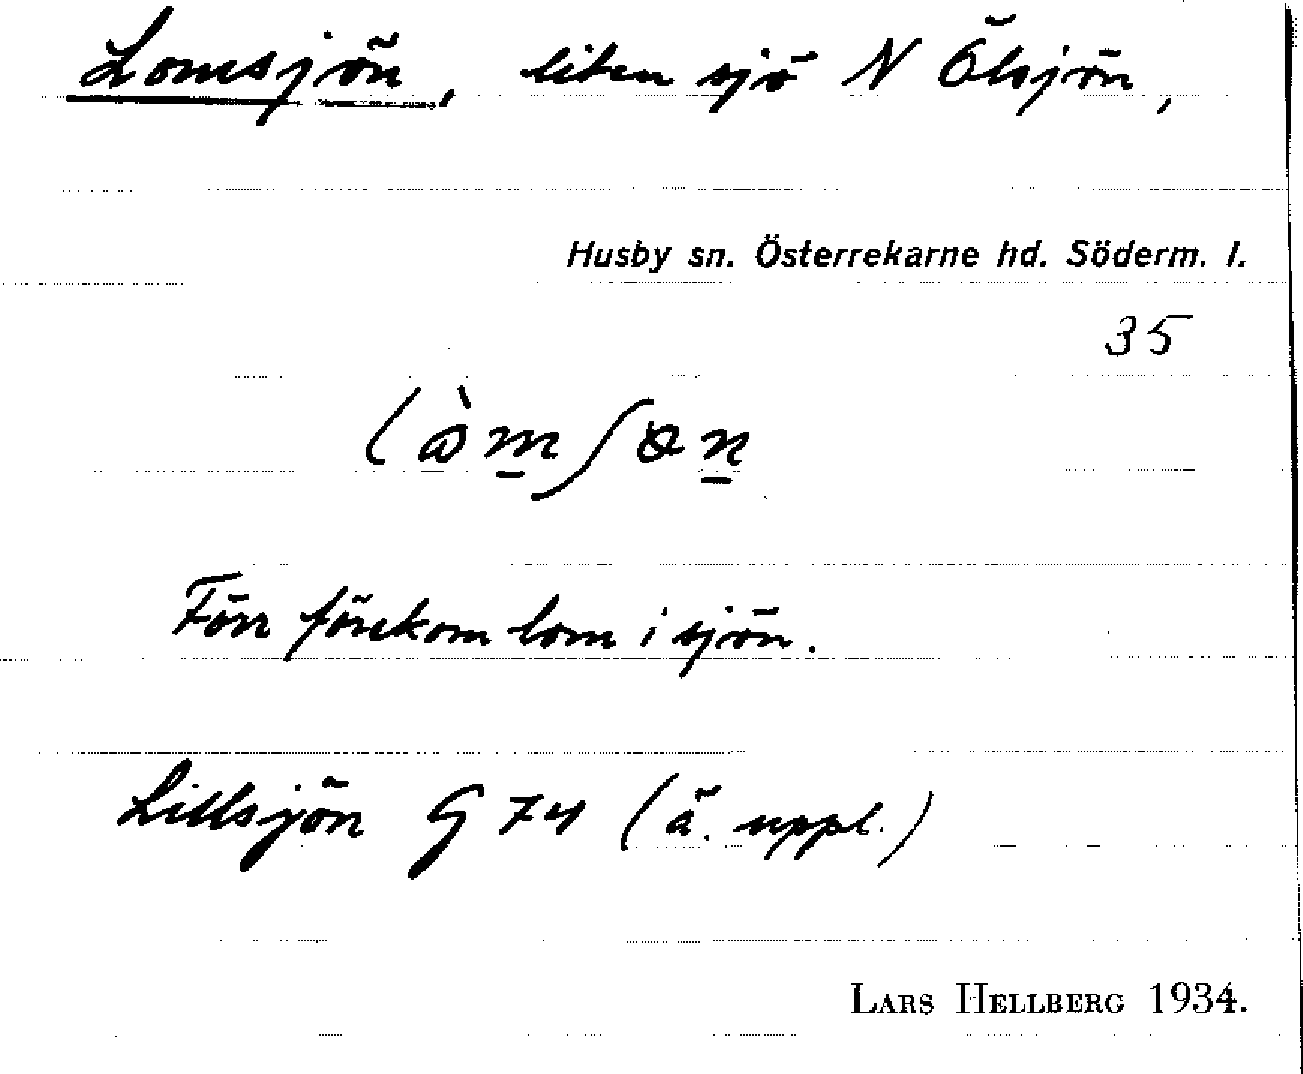 Lomsjön, liten sjö N Ölsjön,
Husby sn. Österrekarne hd. Söderm. l.
35
Förr förekom lom i sjön.
Lillsjön G 74 (ä. uppl.)
LARS HELLBERG 1934.